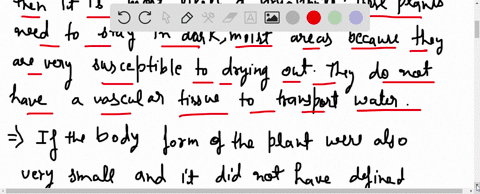 then it is
plants
need to stay in dark, moist areas because they
are very susceptible to drying out. They do not
have a vascular tissue to transport water.
⇒ If the body form of the plant were also
very small and it did not have defined